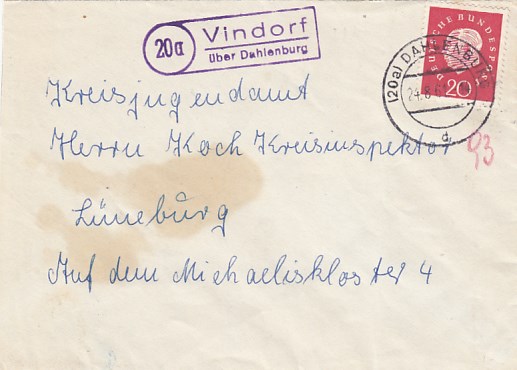 20a Vindorf
über Dahlenburg
(20a) DAHLENBURG
24.8.6
d
DEUTSCHE BUNDESPOST
20
Kreisjugendamt
Herrn Koch Kreisinspektor
93
Lüneburg
Auf dem Michaeliskloster 4